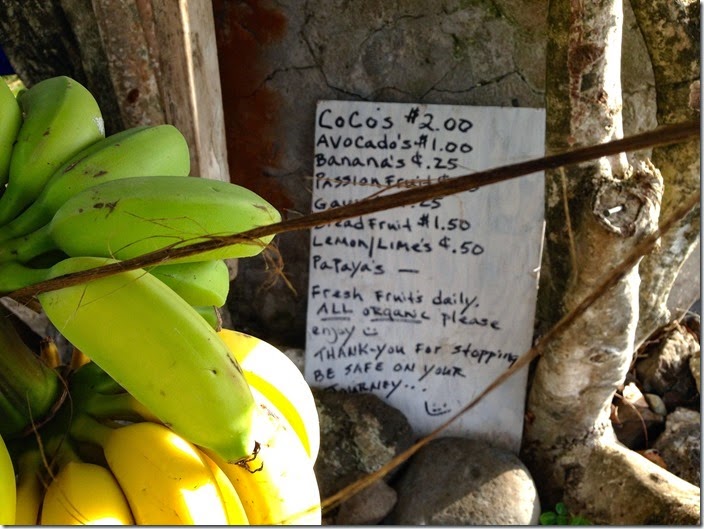 CoCo's $2.00
Avocado's $1.00
Banana's ¢.25
Passion Fruit
.25
Breadfruit $1.50
Lemon/Lime's ¢.50
Papaya's —
Fresh Fruit's daily.
ALL organic please
enjoy ☺
THANK-YOU For stopping
BE SAFE ON YOUR
JOURNEY...